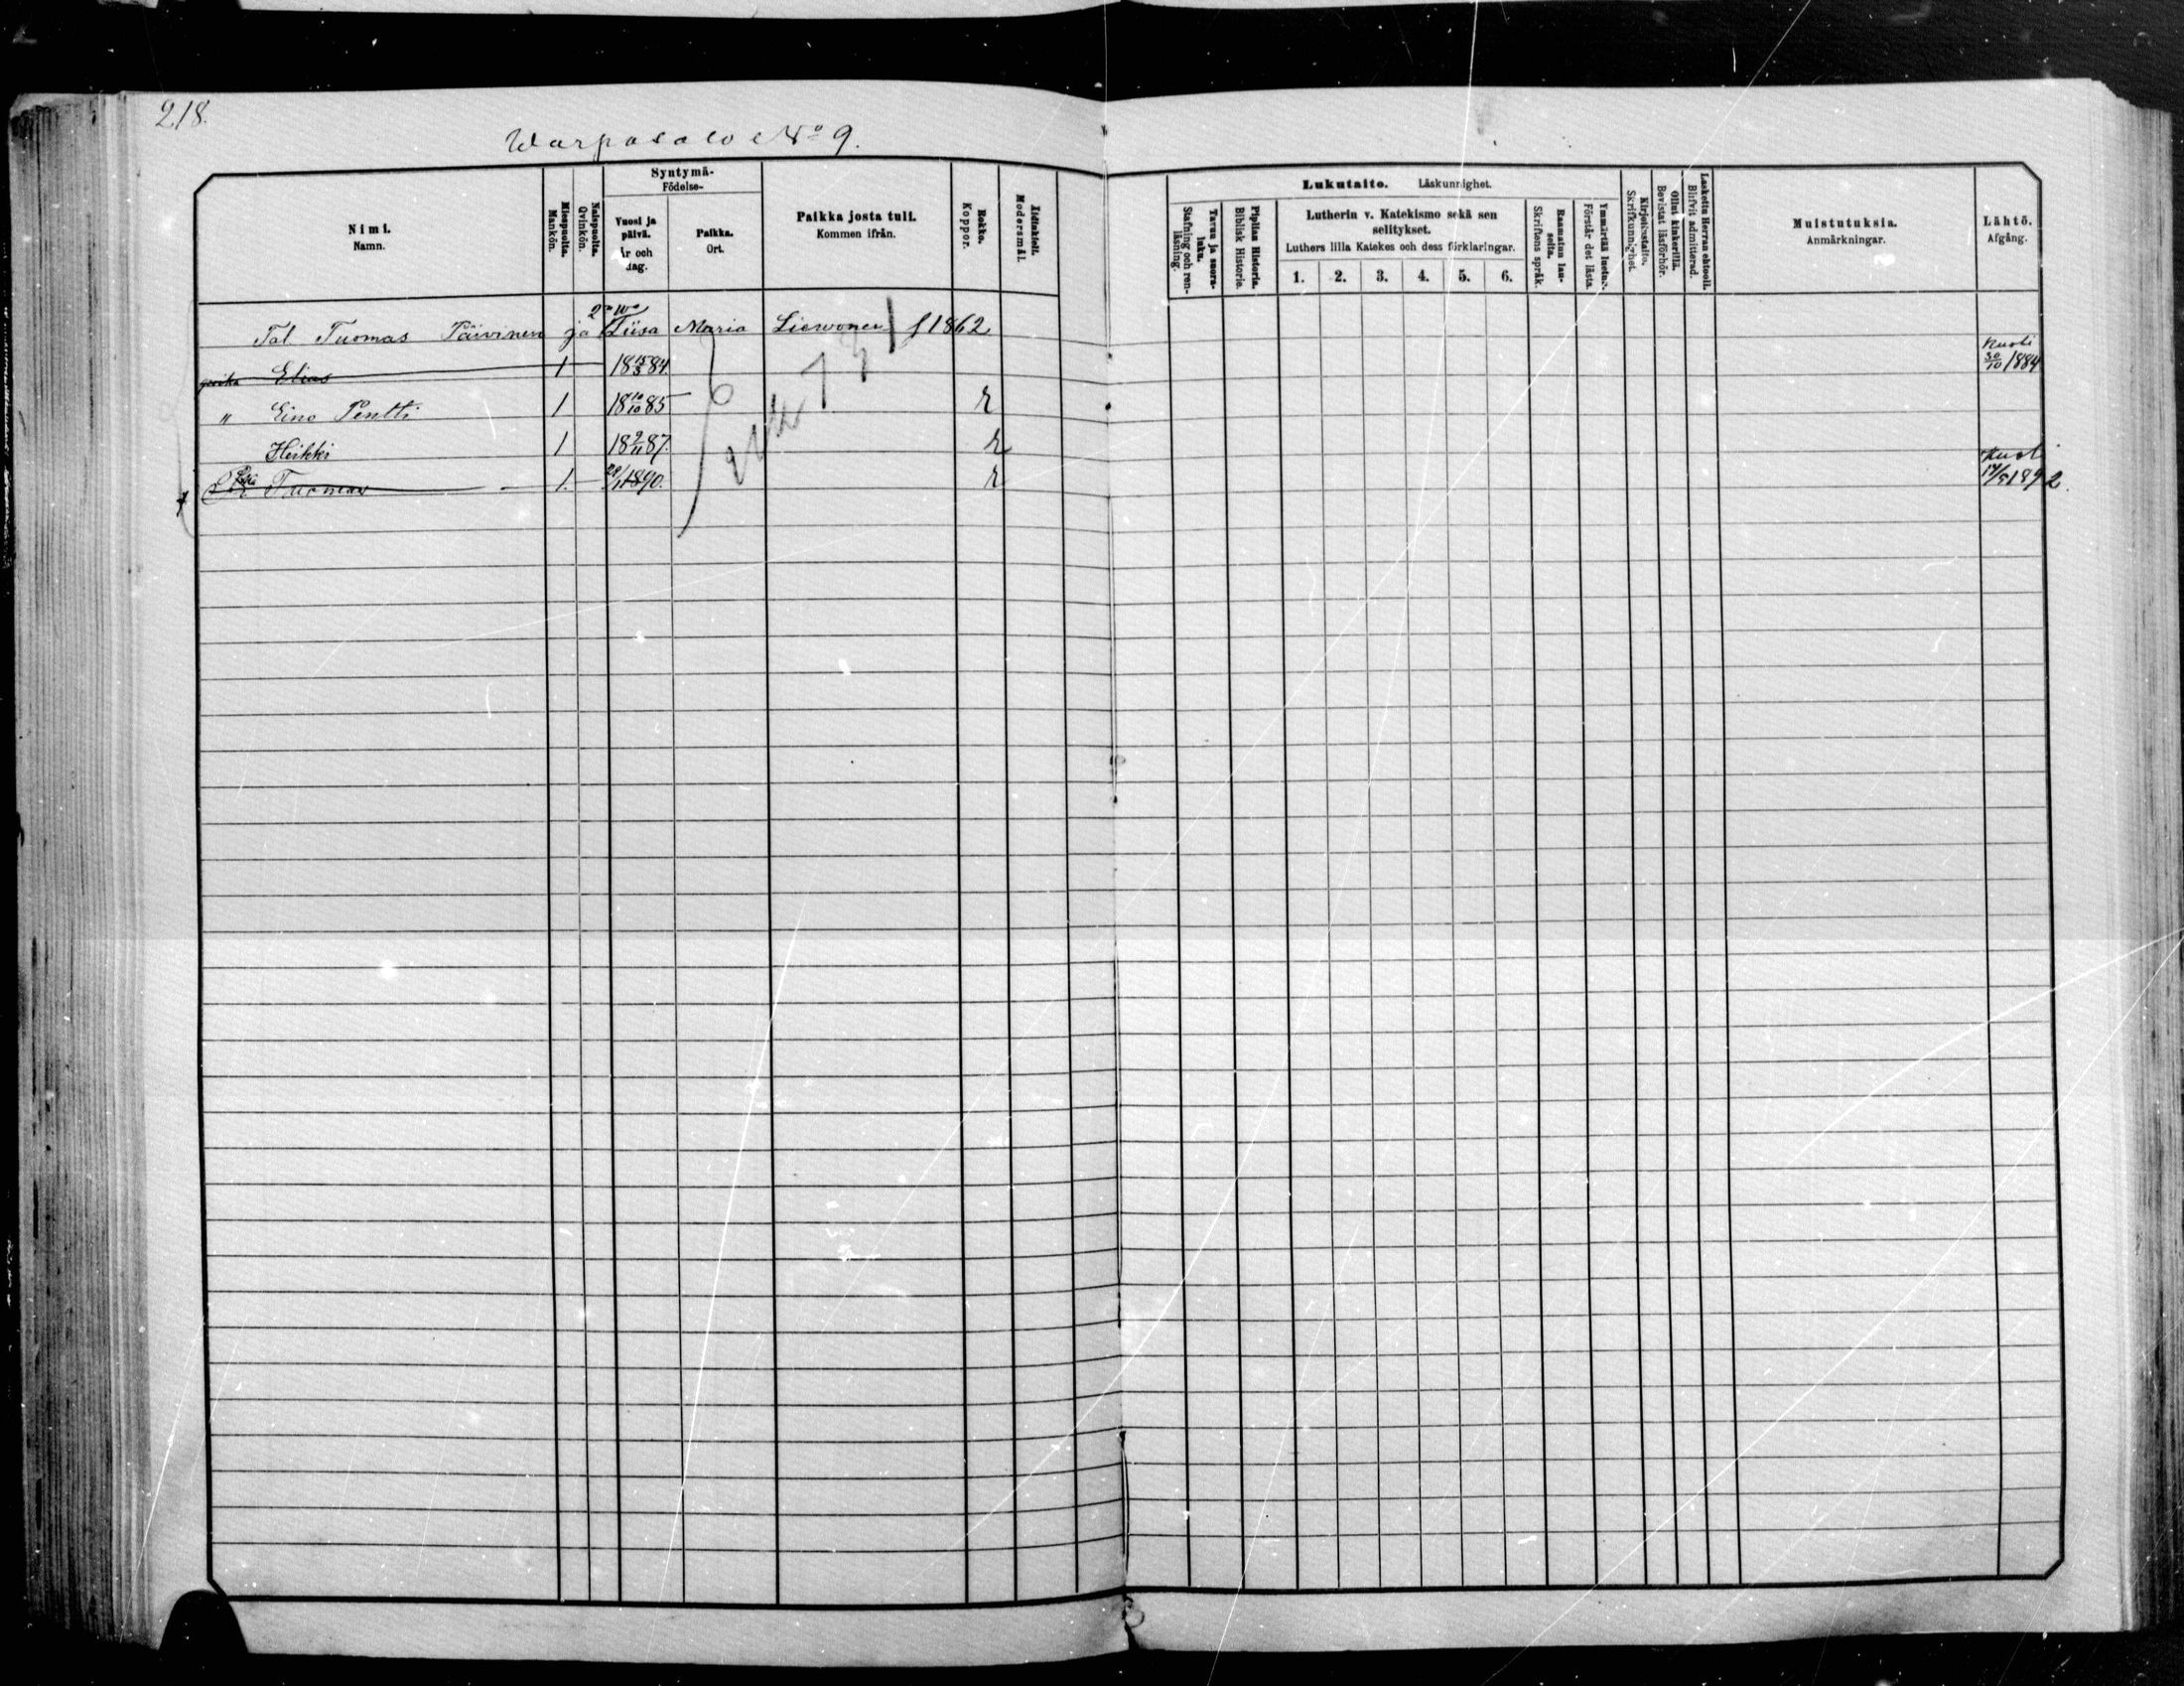 218.
Warpasalo No 9.
Nimi.
Namn.
Miespuolta.
Mankön.
Naispuolta.
Qvinkön.
Syntymä-
Födelse-
Vuosi ja päivä.
År och dag.
Paikka.
Ort.
Paikka josta tuli.
Kommen ifrån.
Rokko.
Koppor.
Äidinkieli.
Modersmål.
Tavuu ja suora-luku.
Stafning och ren-läsning.
Piplian Historia.
Biblisk Historie.
Lukutaito. Läskunnighet.
Lutherin v. Katekismo sekä sen
selitykset.
Luthers lilla Katekes och dess förklaringar.
1. 2. 3. 4. 5. 6.
Raamatun lau-seita.
Skriftens språk.
Ymmärtää luetun.
Förstår det lästa.
Kirjoitustaito.
Skrifkunnighet.
Ollut kinkerillä.
Bevistat läsförhör.
Laskettu Herran ehtooll.
Blifvit admitterad.
Muistutuksia.
Anmärkningar.
Lähtö.
Afgång.
Tal. Tuomas Päivinen ja Liisa Maria Liewonen f 1862
poika Elias 1 18 15/3 84. Kuoli 30/10 1884
" Eino Pentti 1 18 10/10 85 r
Heikki 1 18 9/11 87. r
Tuomas 1. 1890. r Kuoli 14/5 1892.